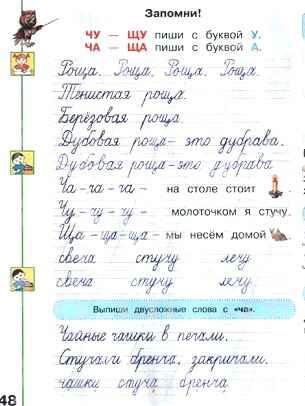 Запомни!
ЧУ — ЩУ пиши с буквой У.
ЧА — ЩА пиши с буквой А.
Роща. Роща. Роща. Роща.
Тенистая роща.
Берёзовая роща
Дубовая роща - это дубрава.
Дубовая роща - это дубрава
Ча - ча - ча - на столе стоит
Чу - чу - чу - молоточком я стучу.
Ща - ща - ща - мы несём домой
свеча стучу лечу
свеча стучу лечу
Выпиши двусложные слова с «ча».
Чайные чашки в печали.
Стуча и бренча, закричали.
чашки стуча бренча
48